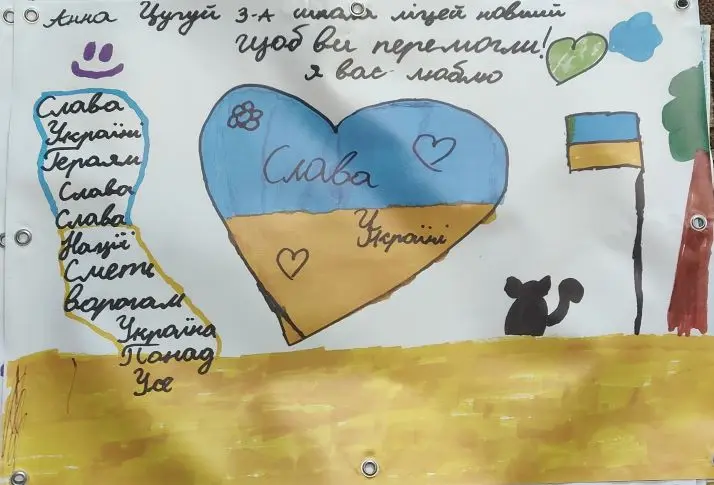 Анна Цугуй 3-А школа ліцей новший
Щоб ви перемогли!
я вас люблю
Слава
Україні
Героям
Слава
Слава
Нації
Сметь
ворогам
Україна
Панад
Усе
Слава
Україні